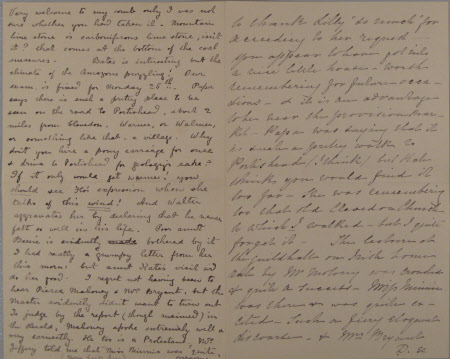 Very welcome to my comb only I was not
one whether you had taken it. Mountain
limestone is carboniferous limestone, isn't
it? that comes at the bottom of the coal
measures. Bates is interesting but the
climate of the Amazons puzzling! Our
exam. is fixed for Monday 25th. Papa
says there is such a pretty place to be
seen on the road to Portishead, about 2
miles from Clevedon, Warner, or Walmer,
or something like that, a village. Why
don't you hire a pony carriage for once
& drive to Portishead for geology's sake?
If it only would get warmer! you
should see expression when she
talks of this wind! And Walter
aggravates her by declaring that he never
felt so well in his life. Poor aunt
Bessie is evidently bothered by it
I had really a grumpy letter from her
this morn: but aunt Kate's visit will
do her good. I regret not having seen to
hear Pierce Mahony & Mrs Bryant, but the
Master evidently didn't want to turn out
To judge by the report (though maimed) in
the Herald, Mahony spoke extremely well &
very correctly. He too is a Protestant. Mrs
Jeffery told me that Miss Minnie was quite
to thank Lilly "so much" for
acceeding to her request -
you appear to have got into
a nice little house - worth
remembering for future occa
sions - & it is an advantage
to be near the provision mar-
ket - Papa was saying that it
is such a pretty walk to
Portishead (I think) but Kate
thinks you would find it
too far - She was remembering
too that old Church
to which I walked - but I quite
forgot it - The lecture at
the Guildhall on Irish home
rule by Mr Mahony was crowded
& quite a success - Miss Minnie
was there & was quite ex-
cited - Such a fiery eloquent
discourse - & Mrs Bryant